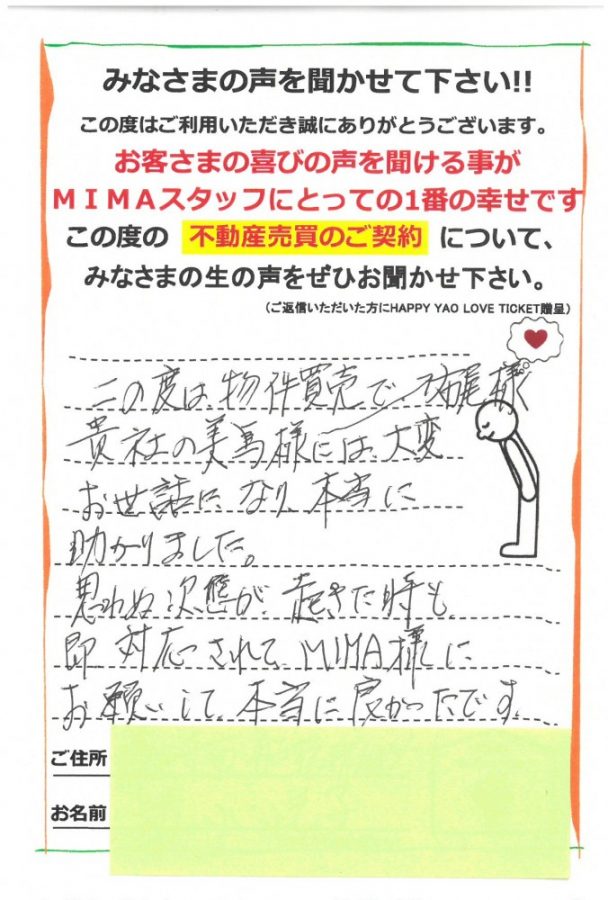 みなさまの声を聞かせて下さい!!
この度はご利用いただき誠にありがとうございます。
お客さまの喜びの声を聞ける事が
MIMAスタッフにとっての1番の幸せです
この度の 不動産売買のご契約 について、
みなさまの生の声をぜひお聞かせ下さい。
(ご返信いただいた方にHAPPY YAO LOVE TICKET贈呈)
この度は、物件買売で 尾様
貴社の美馬様には大変
お世話になり、本当に
助かりました。
思わぬ次態が起きた時も、
即対応されて、MIMA様に
お願いして、本当に良かったです。
ご住所
お名前